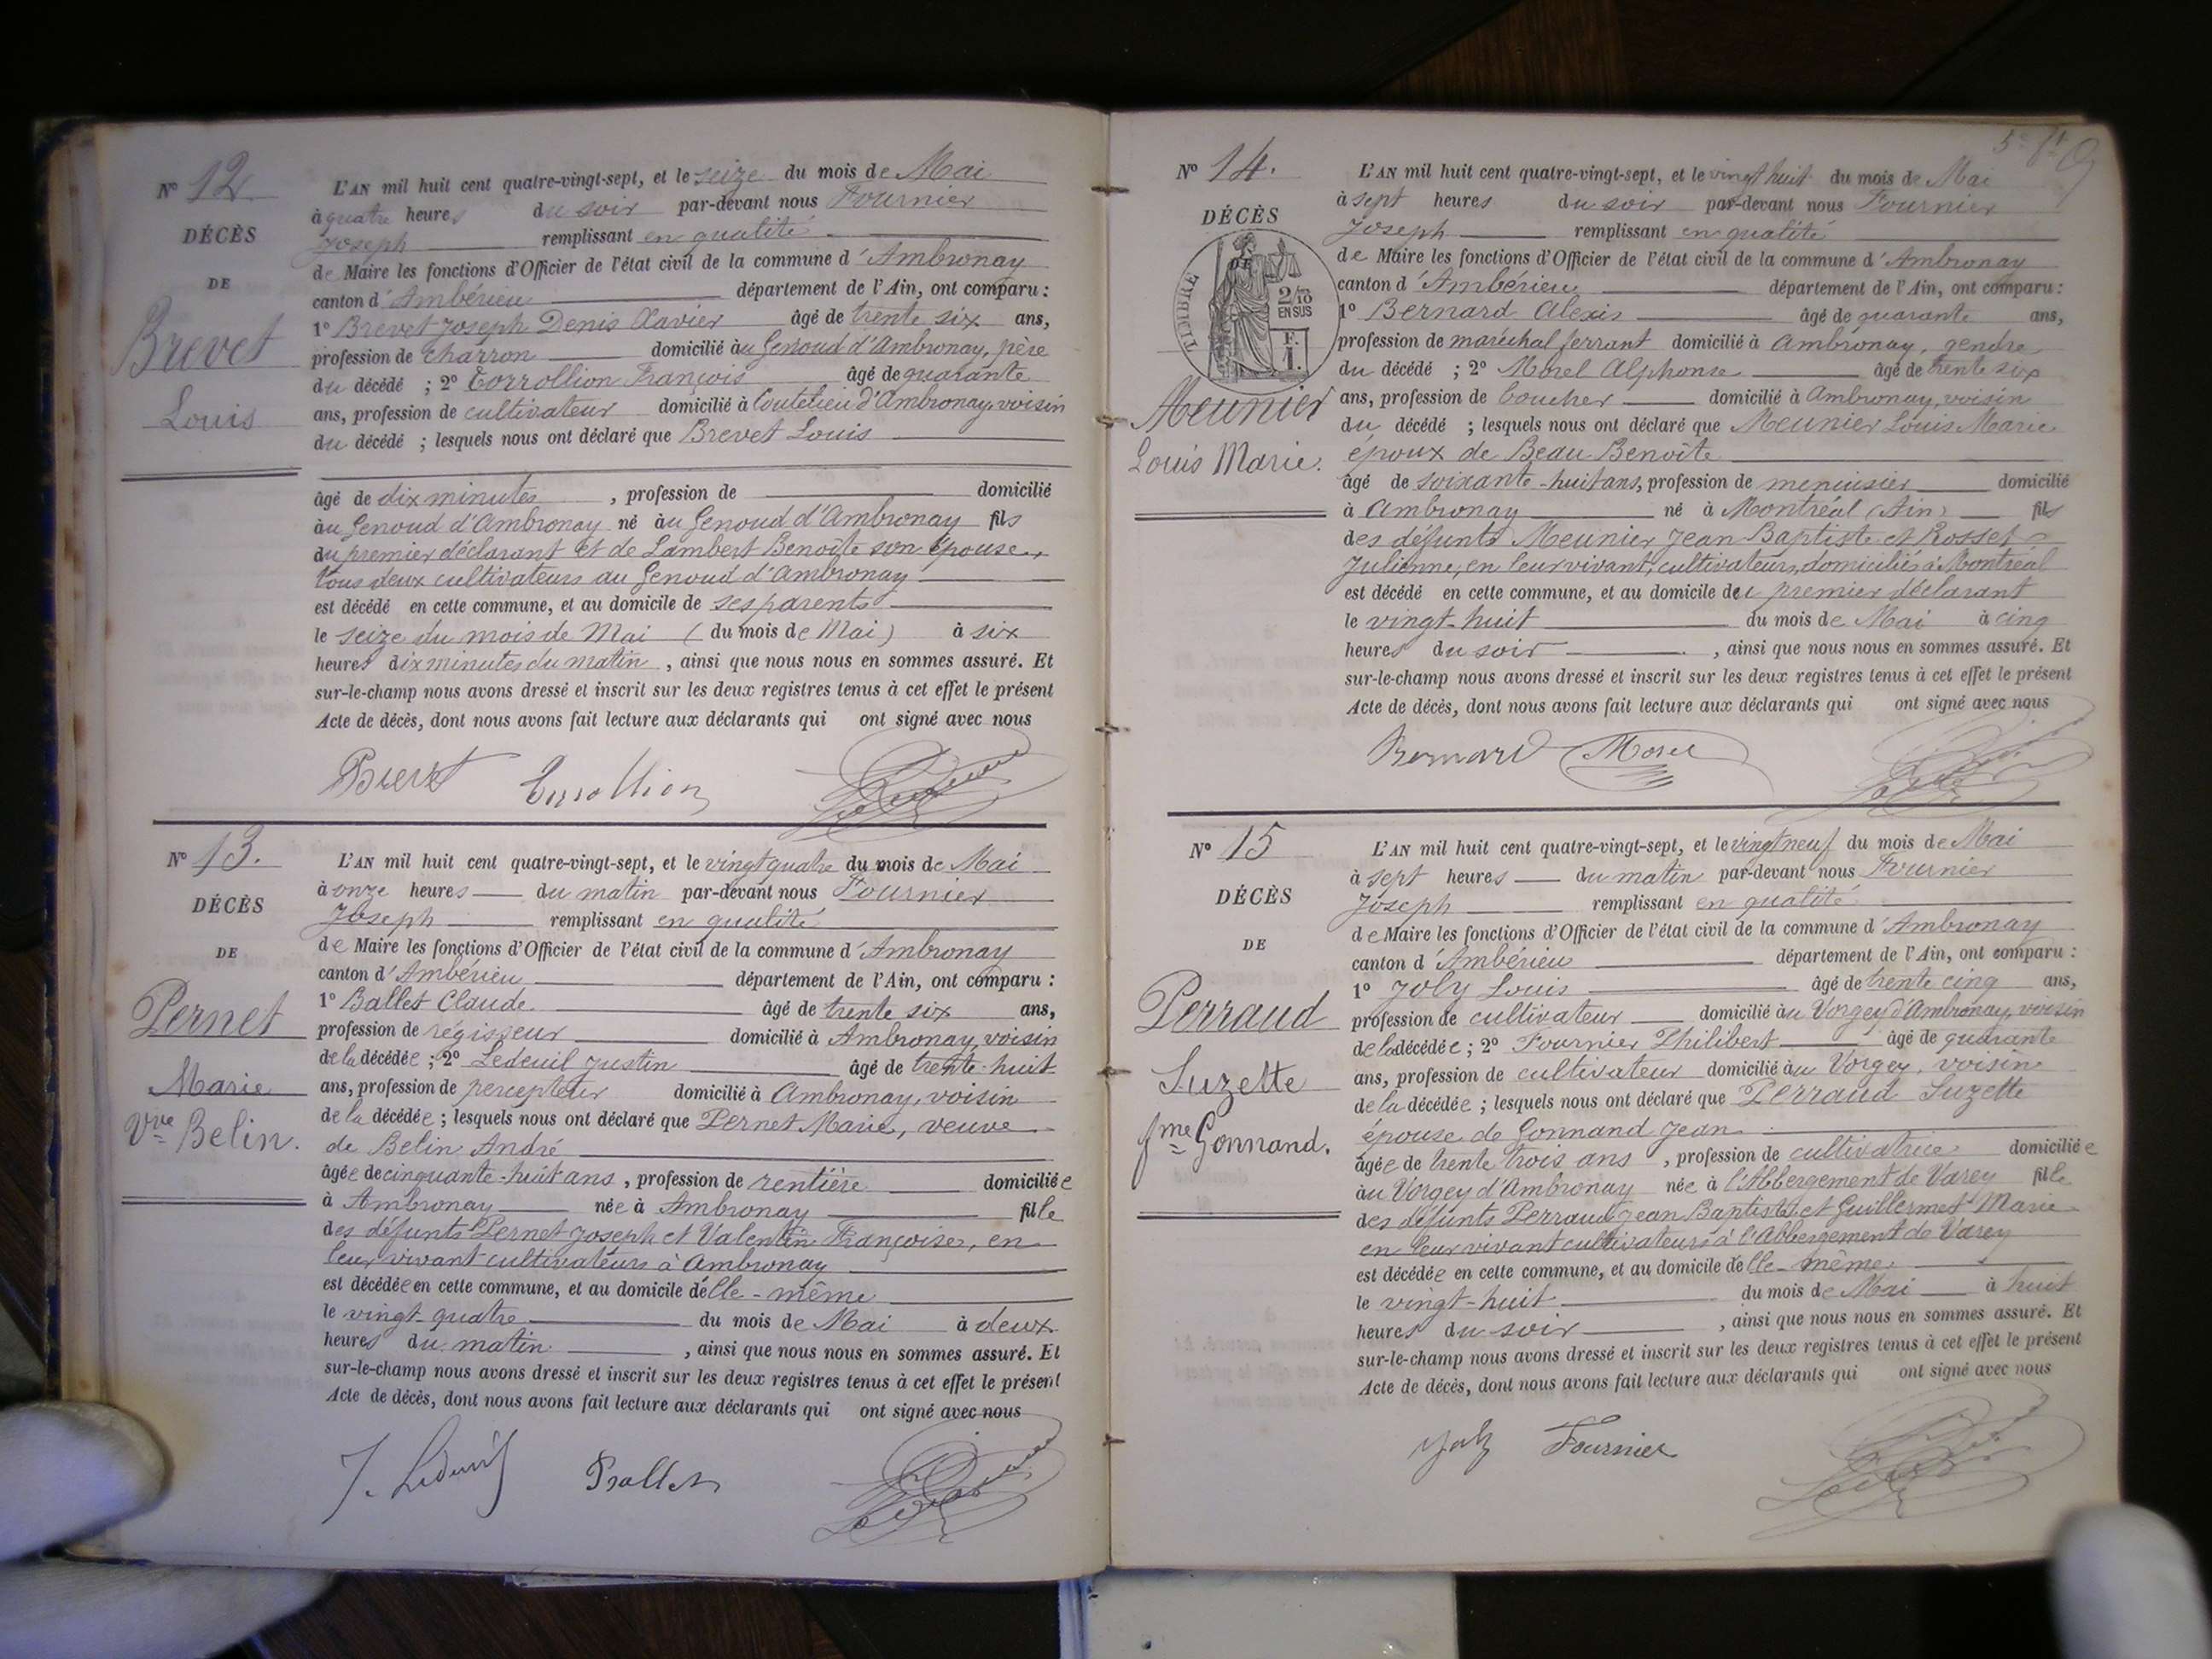 N° 12
DÉCÈS
DE
Brevet
Louis
L'AN mil huit cent quatre-vingt-sept, et le seize du mois de Mai
à quatre heures du soir par-devant nous Fournier
Joseph remplissant en qualité
de Maire les fonctions d'Officier de l'état civil de la commune d'Ambronay
canton d'Ambérieu département de l'Ain, ont comparu :
1° Brevet Joseph Denis Xavier âgé de trente six ans,
profession de charron domicilié au Genoud d'Ambronay, père
du décédé ; 2° Corrollion François âgé de quarante
ans, profession de cultivateur domicilié à Coutelieu d'Ambronay, voisin
du décédé ; lesquels nous ont déclaré que Brevet Louis
âgé de dix minutes , profession de domicilié
au Genoud d'Ambronay né au Genoud d'Ambronay fils
du premier déclarant et de Lambert Benoîte son épouse,
tous deux cultivateurs au Genoud d'Ambronay
est décédé en cette commune, et au domicile de ses parents
le seize du mois de Mai (du mois de Mai) à six
heures dix minutes du matin , ainsi que nous nous en sommes assuré. Et
sur-le-champ nous avons dressé et inscrit sur les deux registres tenus à cet effet le présent
Acte de décès, dont nous avons fait lecture aux déclarants qui ont signé avec nous
Brevet
N° 13.
DÉCÈS
DE
Pernet
Marie
Vve Belin.
L'AN mil huit cent quatre-vingt-sept, et le vingt quatre du mois de Mai
à onze heures du matin par-devant nous Fournier
Joseph remplissant en qualité
de Maire les fonctions d'Officier de l'état civil de la commune d'Ambronay
canton d'Ambérieu département de l'Ain, ont comparu :
1° Ballet Claude âgé de trente six ans,
profession de régisseur domicilié à Ambronay, voisin
de la décédée ; 2° Ledeuil Justin âgé de trente-huit
ans, profession de percepteur domicilié à Ambronay, voisin
de la décédée ; lesquels nous ont déclaré que Pernet Marie, veuve
de Belin André
âgée de cinquante-huit ans , profession de rentière domiciliée
à Ambronay née à Ambronay fille
des défunts Pernet Joseph et Valentin Françoise, en
leur vivant cultivateurs à Ambronay
est décédée en cette commune, et au domicile d'elle-même
le vingt-quatre du mois de Mai à deux
heures du matin , ainsi que nous nous en sommes assuré. Et
sur-le-champ nous avons dressé et inscrit sur les deux registres tenus à cet effet le présent
Acte de décès, dont nous avons fait lecture aux déclarants qui ont signé avec nous
J. Ledeuil Ballet
N° 14.
DÉCÈS
DE
TIMBRE
2/10
EN SUS
F.
1.
Meunier
Louis Marie.
L'AN mil huit cent quatre-vingt-sept, et le vingt huit du mois de Mai
à sept heures du soir par-devant nous Fournier
Joseph remplissant en qualité
de Maire les fonctions d'Officier de l'état civil de la commune d'Ambronay
canton d'Ambérieu département de l'Ain, ont comparu :
1° Bernard Alexis âgé de quarante ans,
profession de maréchal ferrant domicilié à Ambronay, gendre
du décédé ; 2° Morel Alphonse âgé de trente six
ans, profession de boucher domicilié à Ambronay, voisin
du décédé ; lesquels nous ont déclaré que Meunier Louis Marie
époux de Beau Benoîte
âgé de soixante-huit ans, profession de menuisier domicilié
à Ambronay né à Montréal (Ain) fils
des défunts Meunier Jean Baptiste et Rosset
Julienne, en leur vivant, cultivateurs, domiciliés à Montréal
est décédé en cette commune, et au domicile du premier déclarant
le vingt-huit du mois de Mai à cinq
heures du soir , ainsi que nous nous en sommes assuré. Et
sur-le-champ nous avons dressé et inscrit sur les deux registres tenus à cet effet le présent
Acte de décès, dont nous avons fait lecture aux déclarants qui ont signé avec nous
Bernard Morel
N° 15
DÉCÈS
DE
Perraud
Suzette
fme Gonnand.
L'AN mil huit cent quatre-vingt-sept, et le vingt neuf du mois de Mai
à sept heures du matin par-devant nous Fournier
Joseph remplissant en qualité
de Maire les fonctions d'Officier de l'état civil de la commune d'Ambronay
canton d'Ambérieu département de l'Ain, ont comparu :
1° Joly Louis âgé de trente cinq ans,
profession de cultivateur domicilié au Vorgey d'Ambronay, voisin
de la décédée ; 2° Fournier Philibert âgé de quarante
ans, profession de cultivateur domicilié au Vorgey, voisin
de la décédée ; lesquels nous ont déclaré que Perraud Suzette
épouse de Gonnand Jean
âgée de trente trois ans , profession de cultivatrice domiciliée
au Vorgey d'Ambronay née à l'Abbergement de Varey fille
des défunts Perraud Jean Baptiste et Guillermet Marie
en leur vivant cultivateurs à l'Abbergement de Varey
est décédée en cette commune, et au domicile d'elle-même
le vingt-huit du mois de Mai à huit
heures du soir , ainsi que nous nous en sommes assuré. Et
sur-le-champ nous avons dressé et inscrit sur les deux registres tenus à cet effet le présent
Acte de décès, dont nous avons fait lecture aux déclarants qui ont signé avec nous
Joly Fournier